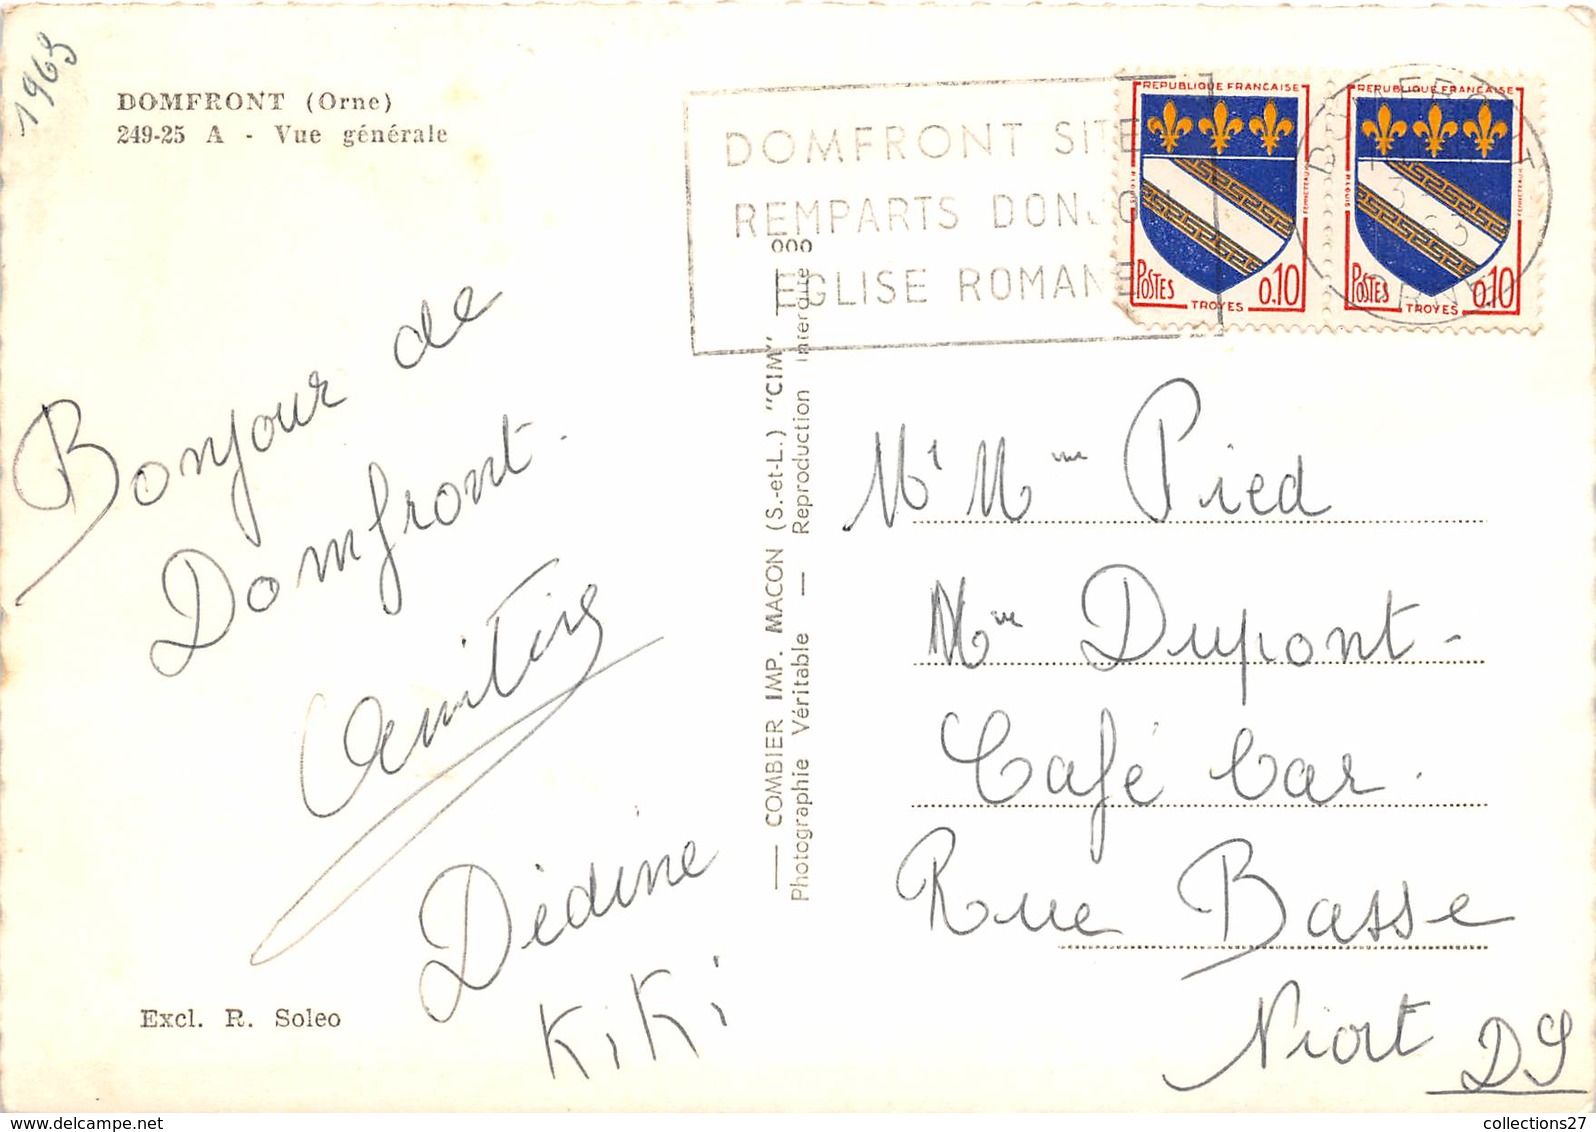 1963
DOMFRONT (Orne)
249-25 A - Vue générale
Bonjour de
Domfront.
Dédine
KiKi
Excl. R. Soleo
COMBIER IMP. MACON (S.-et-L.) "CIM"
Photographie Véritable — Reproduction interdite
000
DOMFRONT SITE
REMPARTS DONJON
EGLISE ROMANE
REPUBLIQUE FRANÇAISE
POSTES
0,10
TROYES
REPUBLIQUE FRANÇAISE
POSTES
0,10
TROYES
DOMFRONT
63
ORNE
Mr Mme Pied
Mme Dupont -
Café bar.
Rue Basse
Niort DS
collections27
www.delcampe.net